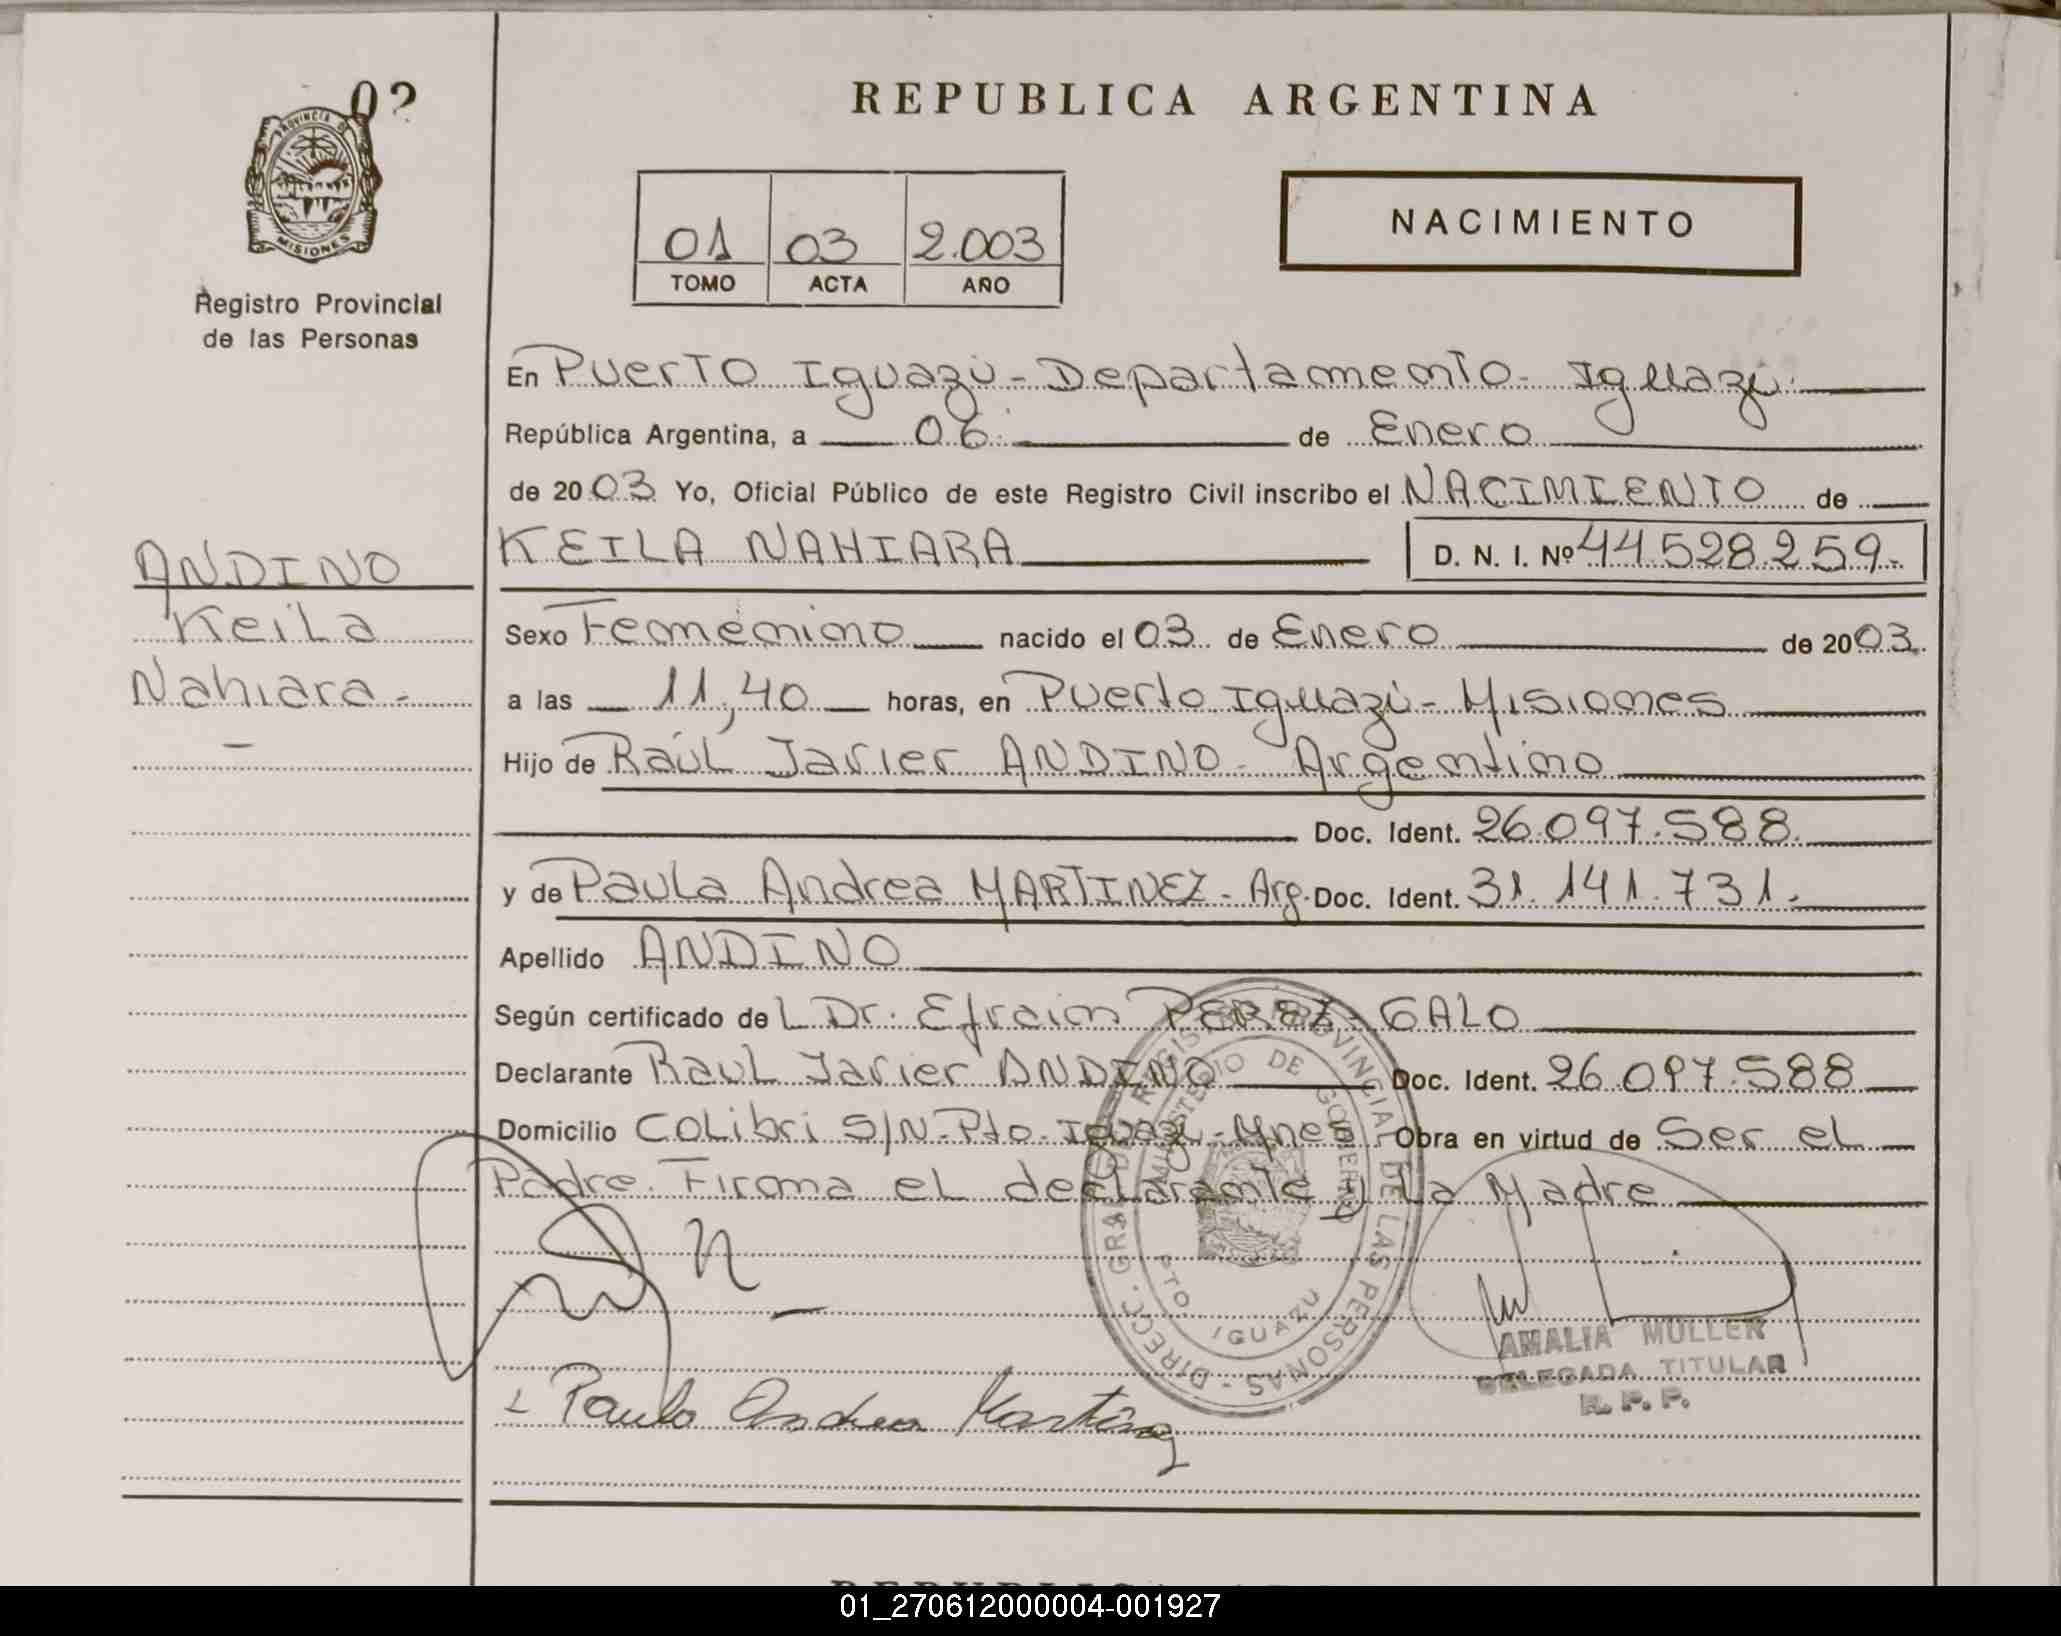 02
REPUBLICA ARGENTINA
PROVINCIA DE
MISIONES
Registro Provincial
de las Personas
01 03 2.003
TOMO ACTA AÑO
NACIMIENTO
En Puerto Iguazú - Departamento - Iguazú.
República Argentina, a 06. de Enero
de 2003 Yo, Oficial Público de este Registro Civil inscribo el NACIMIENTO de
KEILA NAHIARA D. N. I. Nº 44.528.259.-
ANDINO
Keila
Nahiara -
Sexo Femenino nacido el 03 de Enero de 2003.
a las 11,40 horas, en Puerto Iguazú - Misiones
Hijo de Raúl Javier ANDINO - Argentino
Doc. Ident. 26.097.588.
y de Paula Andrea MARTINEZ - Arg. Doc. Ident. 31.141.731.-
Apellido ANDINO
Según certificado de L Dr. Efraim PEREZ - GALO
Declarante Raul Javier ANDINO Doc. Ident. 26.097.588
Domicilio COLibri S/N - Pto. Iguazú - Mnes. Obra en virtud de Ser el
Padre. Firma el declarante y La Madre
DIRECC. GRAL. DE REGISTRO PROVINCIAL DE LAS PERSONAS -
MINISTERIO DE GOBIERNO
PTO IGUAZU
AMALIA MULLER
DELEGADA TITULAR
R. P. P.
Paula Andrea Martinez
01_270612000004-001927